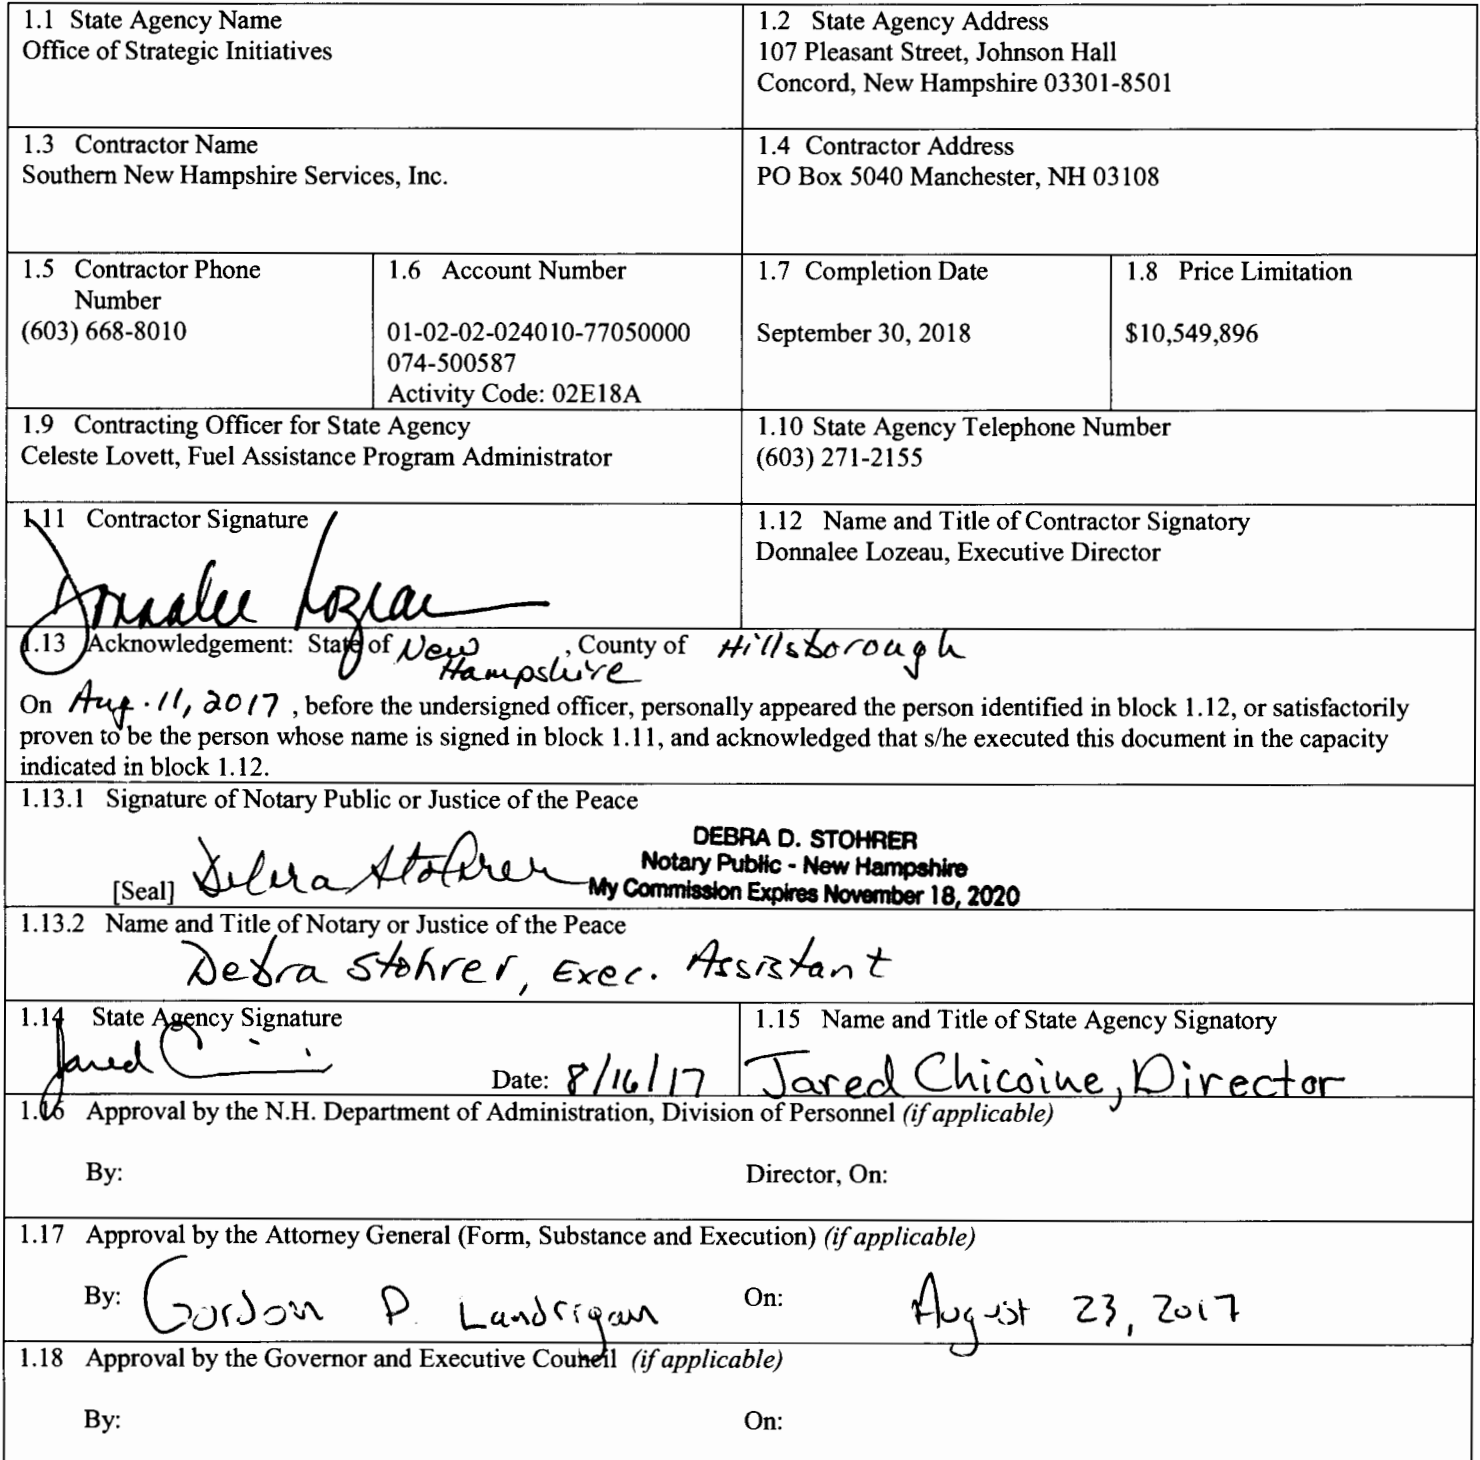 1.1 State Agency Name
Office of Strategic Initiatives
1.2 State Agency Address
107 Pleasant Street, Johnson Hall
Concord, New Hampshire 03301-8501
1.3 Contractor Name
Southern New Hampshire Services, Inc.
1.4 Contractor Address
PO Box 5040 Manchester, NH 03108
1.5 Contractor Phone
Number
(603) 668-8010
1.6 Account Number
01-02-02-024010-77050000
074-500587
Activity Code: 02E18A
1.7 Completion Date
September 30, 2018
1.8 Price Limitation
$10,549,896
1.9 Contracting Officer for State Agency
Celeste Lovett, Fuel Assistance Program Administrator
1.10 State Agency Telephone Number
(603) 271-2155
1.11 Contractor Signature
Donnalee Lozeau
1.12 Name and Title of Contractor Signatory
Donnalee Lozeau, Executive Director
1.13 Acknowledgement: State of New Hampshire, County of Hillsborough
On Aug. 11, 2017, before the undersigned officer, personally appeared the person identified in block 1.12, or satisfactorily
proven to be the person whose name is signed in block 1.11, and acknowledged that s/he executed this document in the capacity
indicated in block 1.12.
1.13.1 Signature of Notary Public or Justice of the Peace
DEBRA D. STOHRER
Notary Public - New Hampshire
My Commission Expires November 18, 2020
[Seal] Debra Stohrer
1.13.2 Name and Title of Notary or Justice of the Peace
Debra Stohrer, Exec. Assistant
1.14 State Agency Signature
Jared C
Date: 8/16/17
1.15 Name and Title of State Agency Signatory
Jared Chicoine, Director
1.16 Approval by the N.H. Department of Administration, Division of Personnel (if applicable)
By: Director, On:
1.17 Approval by the Attorney General (Form, Substance and Execution) (if applicable)
By: Gordon P. Landrigan On: August 23, 2017
1.18 Approval by the Governor and Executive Council (if applicable)
By: On: